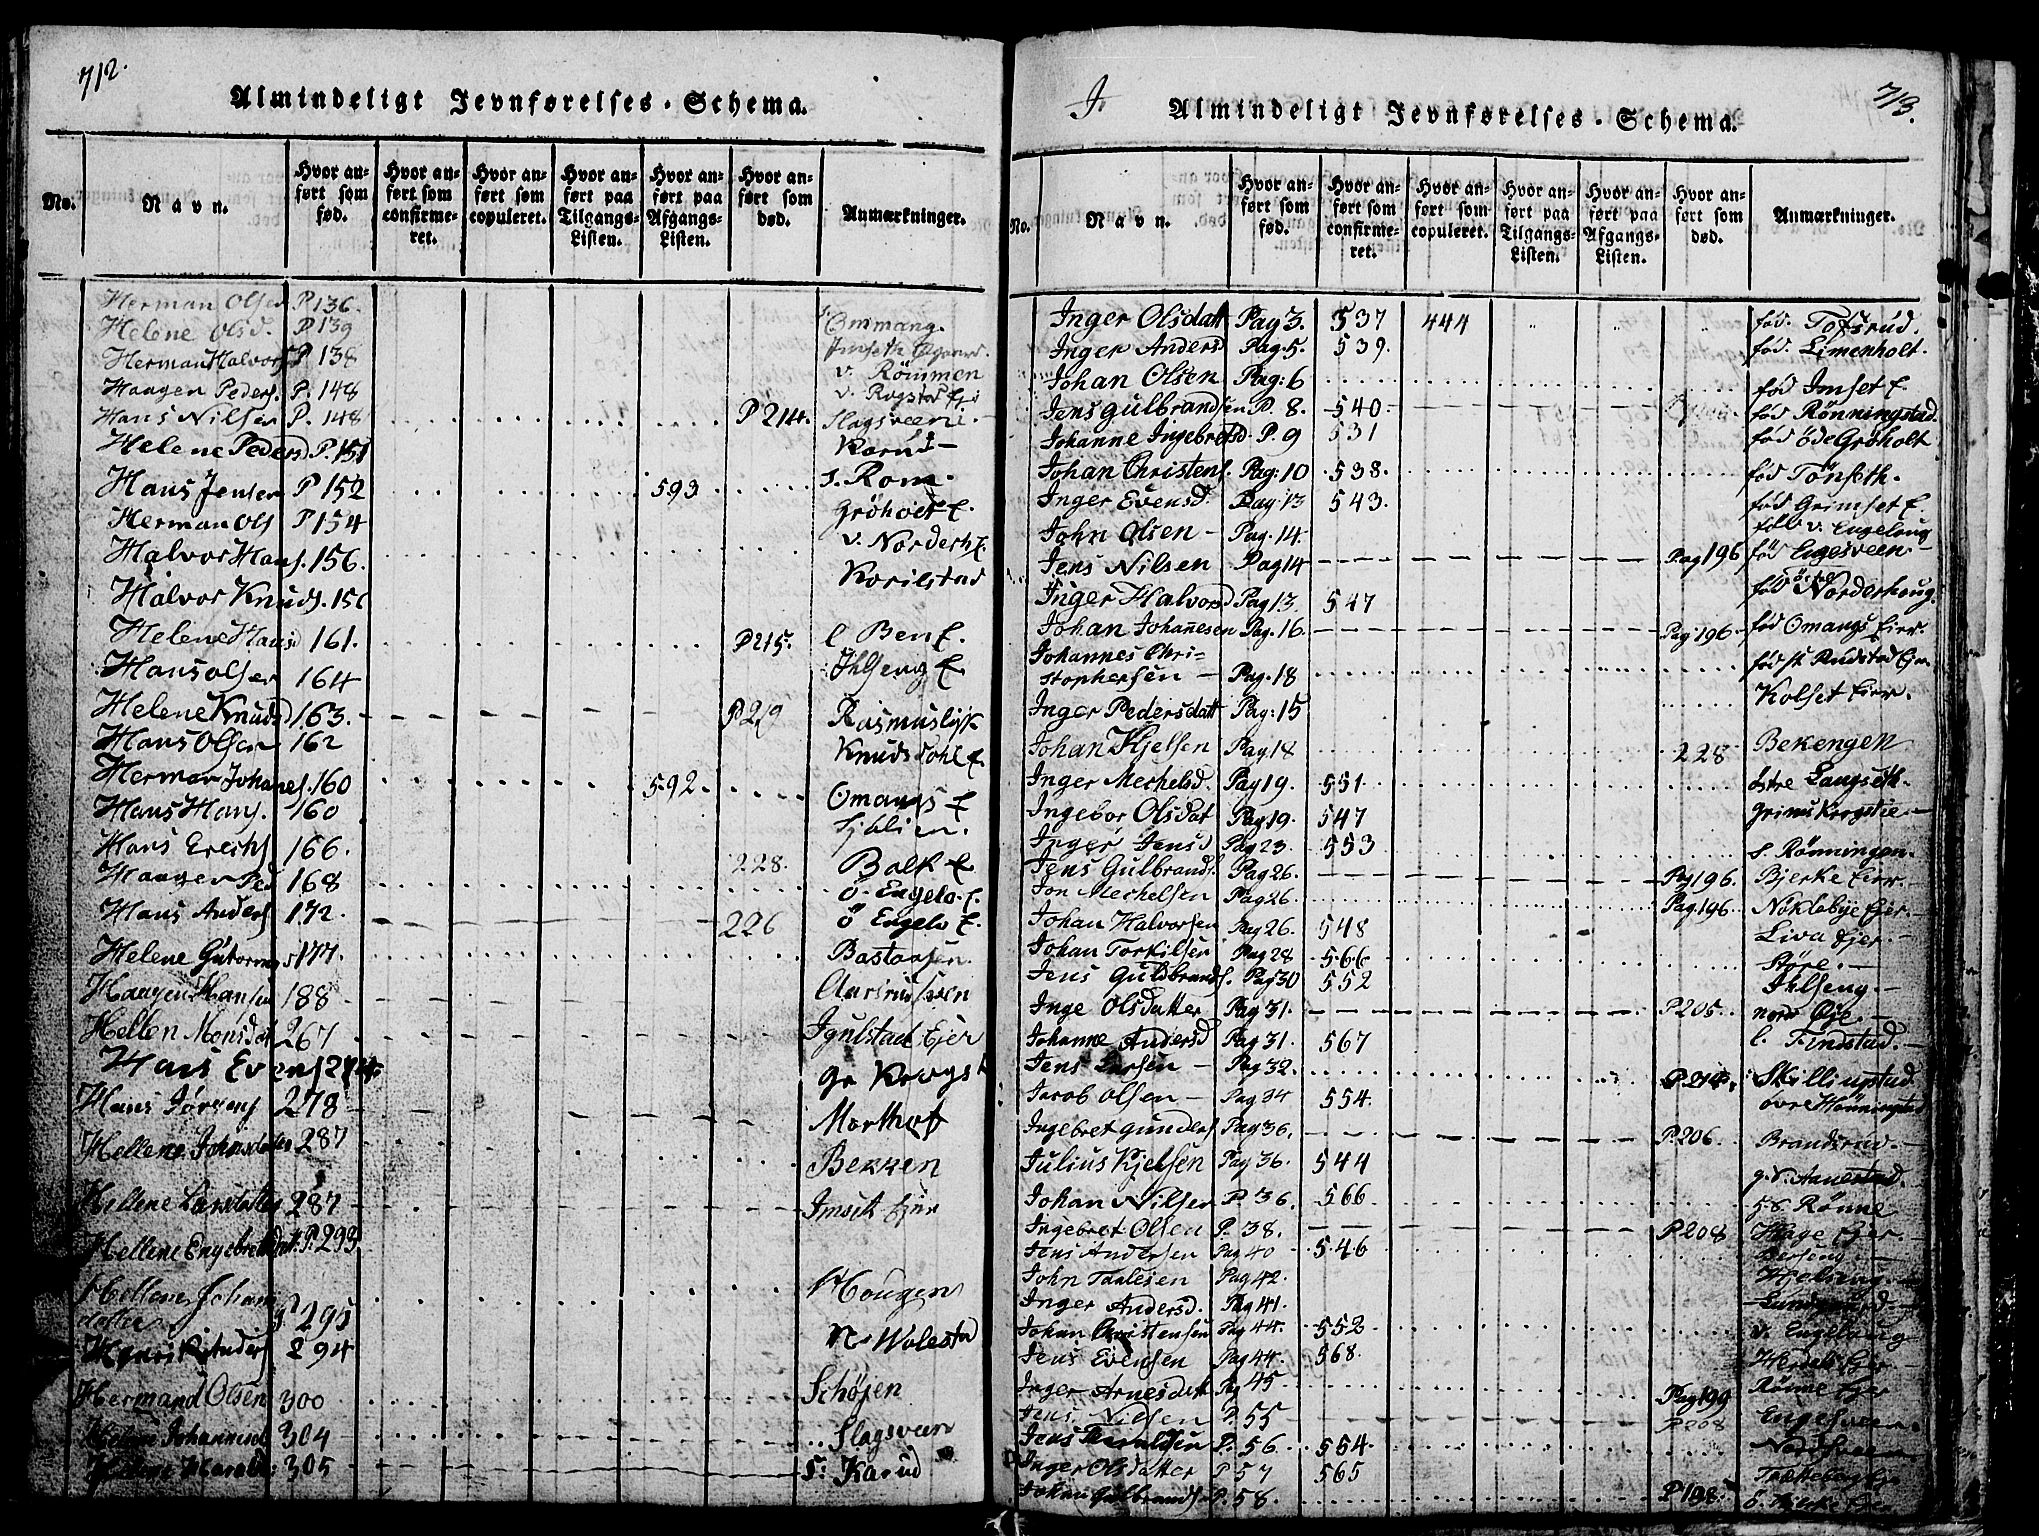 712.
Almindeligt Jevnførelses-Schema.
No. Navn. Hvor anført som fød. Hvor anført som confirmeret. Hvor anført som copuleret. Hvor anført paa Tilgangs-Listen. Hvor anført paa Afgangs-Listen. Hvor anført som død. Anmærkninger.
Herman Olsen P. 136. Ommang.
Helene Olsd. P. 139
Herman Halvors P. 138 v. Römmen
Haagen Peders. P. 148 v. Rogstad
Hans Nilsen P. 148 P 214. Slagsveen
Helene Pedersd P. 151 Karud
Hans Jensen P 152 593 s. Rom.
Herman Ols P 154 Gröholt E.
Halvor Hans. 156. v. Norderh E.
Halvor Knuds. 156 Korilstad
Helene Hansd 161. P 215. l Ben E.
Hans Olsen 164 Ihlseng E
Helene Knudsd 163. P 219 Rasmuslyk
Hans Olsen 162 Knudsdahl E
Herman Johanes. 160 592. Omangs E
Hans Hans. 160
Hans Erichs 166. 228. Balk E
Haagen Ped 168 ö. Engelo. E.
Hans Anders 172. 226 ö Engelo E.
Helene Gutorms 177. Bastaasen
Haagen Hansen 188
Hellen Monsdat 267 Igulstad Ejer
Hans Evens 274 Gr Krogs
Hans Jörgens 278
Hellene Johnsdatter 287 Bekken
Hellene Larsdatter 287 Imset Ejer
Hellene Engebretsdatt. P. 293
Hellene Johans
datter 295 Hougen
Henrik Anders 294 N. Wolestad
Hermand Olsen 300 Schøjen
Helene Johannesd 304 Slagsveen
305 S: Karud
I. 713.
Almindeligt Jevnførelses-Schema.
No. Navn. Hvor anført som fød. Hvor anført som confirmeret. Hvor anført som copuleret. Hvor anført paa Tilgangs-Listen. Hvor anført paa Afgangs-Listen. Hvor anført som død. Anmærkninger.
Inger Olsdatt Pag 3. 537 444 fød. Tofsrud.
Inger Andersd Pag. 5. 539. fød. Limenholt.
Johan Olsen Pag: 6 fød Imset E.
Jens Gulbrandsen P. 8. 540 fød Rönningstad.
Johanne Ingebretsd P. 9 531 fød öde Gröholt
Johan Christens. Pag: 10 538. fød Tönseth.
Inger Evensd. Pag 13 543. fød Grimset E.
John Olsen Pag. 14 født v. Engeloug
Jens Nilsen Pag 14 Pag 196 fød Engesveen
Inger Halvorsd Pag 13 547 fød Norderhoug.
Johan Johanesen Pag. 16 Pag 196. fød Omangs Eier.
Johannes Chri-
stophersen Pag. 18 født Rudstad Ejer
Inger Pedersdatt Pag: 15 Kolset Eier.
Johan Kjelsen Pag 18 228 Bekengen
Inger Mechelsd. Pag 19. 551 Langseth.
Ingebor Olsdat Pag 19. 547
Inger Jensd Pag 23. 553 s. Rönningen.
Jens Gulbrands. Pag 26. Pag 196. Bjerke Eier.
Jon Mechelsen Pag 26. Pag. 196 Noklebye Ejer.
Johan Halvorsen Pag 26. 548 Liva Ejer.
Johan Torkilsen Pag 28 566 Störe.
Jens Guldbrands. Pag 30 552 Ihlseng.
Inge Olsdatter Pag 31. P 205. nord Öje.
Johanne Andersd Pag 31. 567 l. Findstad.
Jens Larsen Pag 32. P. 214. Skillingstad
Jacob Olsen Pag 34 554. övre Hönningstad
Ingebret Gunders Pag 36. P. 206. Brandsrud.
Julius Kjelsen Pag 36. 544
Johan Nilsen P. 36. 566 Rönne
Ingebret Olsen P. 38. P 208 Hage Ejer.
Jens Andersen Pag 40 546 Berseng
John Taalesen Pag 42. Hjelseng
Inger Andersd. Pag 41. Lundgaard
Johan Christensen Pag 44. 552 v. Engeloug
Jens Evensen Pag 44. 568.
Inger Arnesdatt Pag 45 Pag 199 Rönne Ejer
Jens Nilsen P. 55 P 208 Engesveen
Jens P. 56 554.
Inger Olsdatter P 57 565
Johan Gulbrands P. 58. P 198.